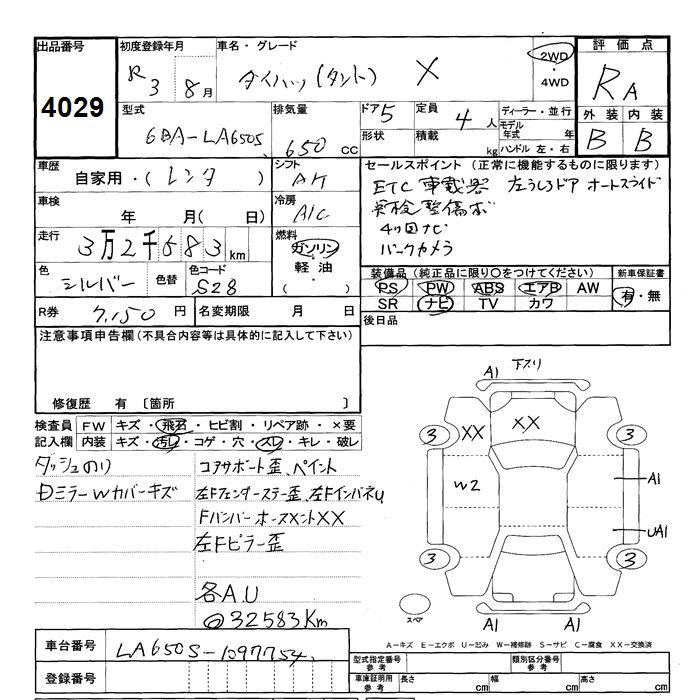 出品番号 初度登録年月 車名・グレード 2WD・4WD 評価点
4029 R3 8月 ダイハツ(タント) X RA
型式 排気量 ドア5 定員 4人 ディーラー・並行 外装 内装
6BA-LA650S 650CC 形状 積載 kg モデル年式 年 ハンドル 左・右 B B
車歴 シフト セールスポイント (正常に機能するものに限ります)
自家用・(レンタ) AT ETC車載器 左うしろドアオートスライド
車検 年 月(日) 冷房 A/C
4つ目ナビ
走行 3万2千583km 燃料 ガソリン・軽油・( ) バックカメラ
色 シルバー 色替 色コード S28 装備品 (純正品に限り〇をつけてください) 新車保証書
PS PW ABS エアB AW 有・無
SR ナビ TV カワ
R券 7,150円 名変期限 月 日 後日品
注意事項申告欄(不具合内容等は具体的に記入して下さい)
修復歴 有 〔箇所 〕
検査員 FW キズ・飛石・ヒビ割・リペア跡・×要
記入欄 内装 キズ・汚レ・コゲ・穴・スレ・キレ・破レ
ダッシュのり コアサポート歪、ペイント
DミラーWカバーキズ 左Fフェンダーステー歪、左FインパネU
FバンパーホースメントXX
左Fピラー歪
各A.U
@32583Km
A1 下スリ
3 XX XX 3
W2 A1
UA1
3 3
スペア A1 A1
A-キズ E-エクボ U-凹み W-補修跡 S-サビ C-腐食 XX-交換済
車台番号 LA650S-1097754
登録番号
型式指定番号 参考 類別区分番号 参考
車庫証明用 参考 長さ cm 幅 cm 高さ cm